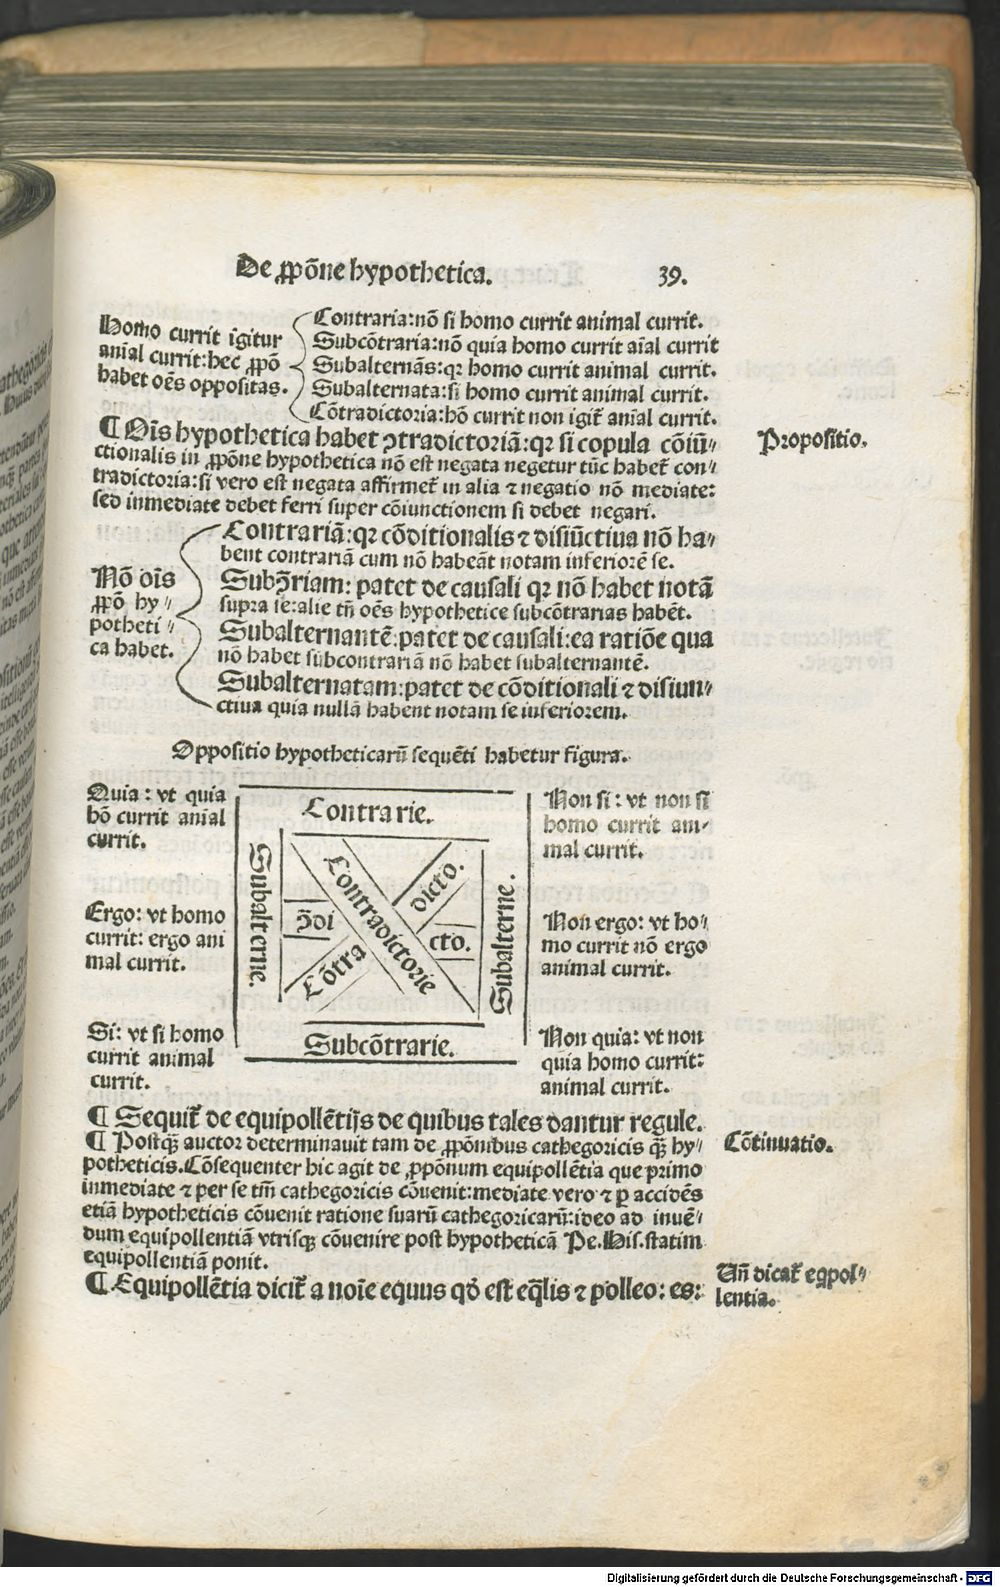 De ꝓpōne hypothetica. 39.
Homo currit īgitur
anīal currit: hec ꝓpō
habet oēs oppositas.
Contraria: nō si homo currit animal currit.
Subcōtraria: nō quia homo currit aīal currit
Subalternās: qꝛ homo currit animal currit.
Subalternata: si homo currit animal currit.
Cōtradictoria: hō currit non igit̄ anīal currit.
¶ Oīs hypothetica habet ↄtradictoriā: qꝛ si copula cōiū⸗
ctionalis in ꝓpōne hypothetica nō est negata negetur tūc habet̄ con⸗
tradictoria: si vero est negata affirmet̄ in alia ⁊ negatio nō mediate:
sed inmediate debet ferri super cōiunctionem si debet negari.
Propositio.
Nō oīs
ꝓpō hy⸗
potheti⸗
ca habet.
Contrariā: qꝛ cōditionalis ⁊ disiūctiua nō ha⸗
bent contrariā cum nō habeāt notam inferiorē se.
Subↄ̄riam: patet de causali qꝛ nō habet notā
supra se: alie tn̄ oēs hypothetice subcōtrarias habēt.
Subalternantē: patet de causali: ea ratiōe qua
nō habet subcontrariā nō habet subalternantē.
Subalternatam: patet de cōditionali ⁊ disiun⸗
ctiua quia nullā habent notam se inferiorem.
Oppositio hypotheticarū sequēti habetur figura.
Quia: vt quia
hō currit anīal
currit.
Contrarie.
Non si: vt non si
homo currit ani⸗
mal currit.
Subalterne.
Contradictorie
dicto.
ↄ̄di
cto.
Cōtra
Subalterne.
Ergo: vt homo
currit: ergo ani
mal currit.
Non ergo: vt ho⸗
mo currit nō ergo
animal currit.
Si: vt si homo
currit animal
currit.
Subcōtrarie.
Non quia: vt non
quia homo currit:
animal currit.
¶ Sequit̄ de equipollētijs de quibus tales dantur regule.
¶ Postqꝫ auctor determinavit tam de ꝓpōnibus cathegoricis qꝫ hy⸗
potheticis. Cōsequenter hic agit de ꝓpōnum equipollētia que primo
inmediate ⁊ per se tm̄ cathegoricis cōuenit: mediate vero ⁊ ꝑ accidēs
etiā hypotheticis cōuenit ratione suarū cathegoricarū: ideo ad inuē⸗
dum equipollentiā vtrisqꝫ cōuenire post hypotheticā Pe. His. statim
equipollentiā ponit.
Cōtinuatio.
¶ Equipollētia dicit̄ a noīe equus qd̄ est eq̄lis ⁊ polleo: es:
Un̄ dicat̄ eqpol⸗
lentia.
Digitalisierung gefördert durch die Deutsche Forschungsgemeinschaft - DFG